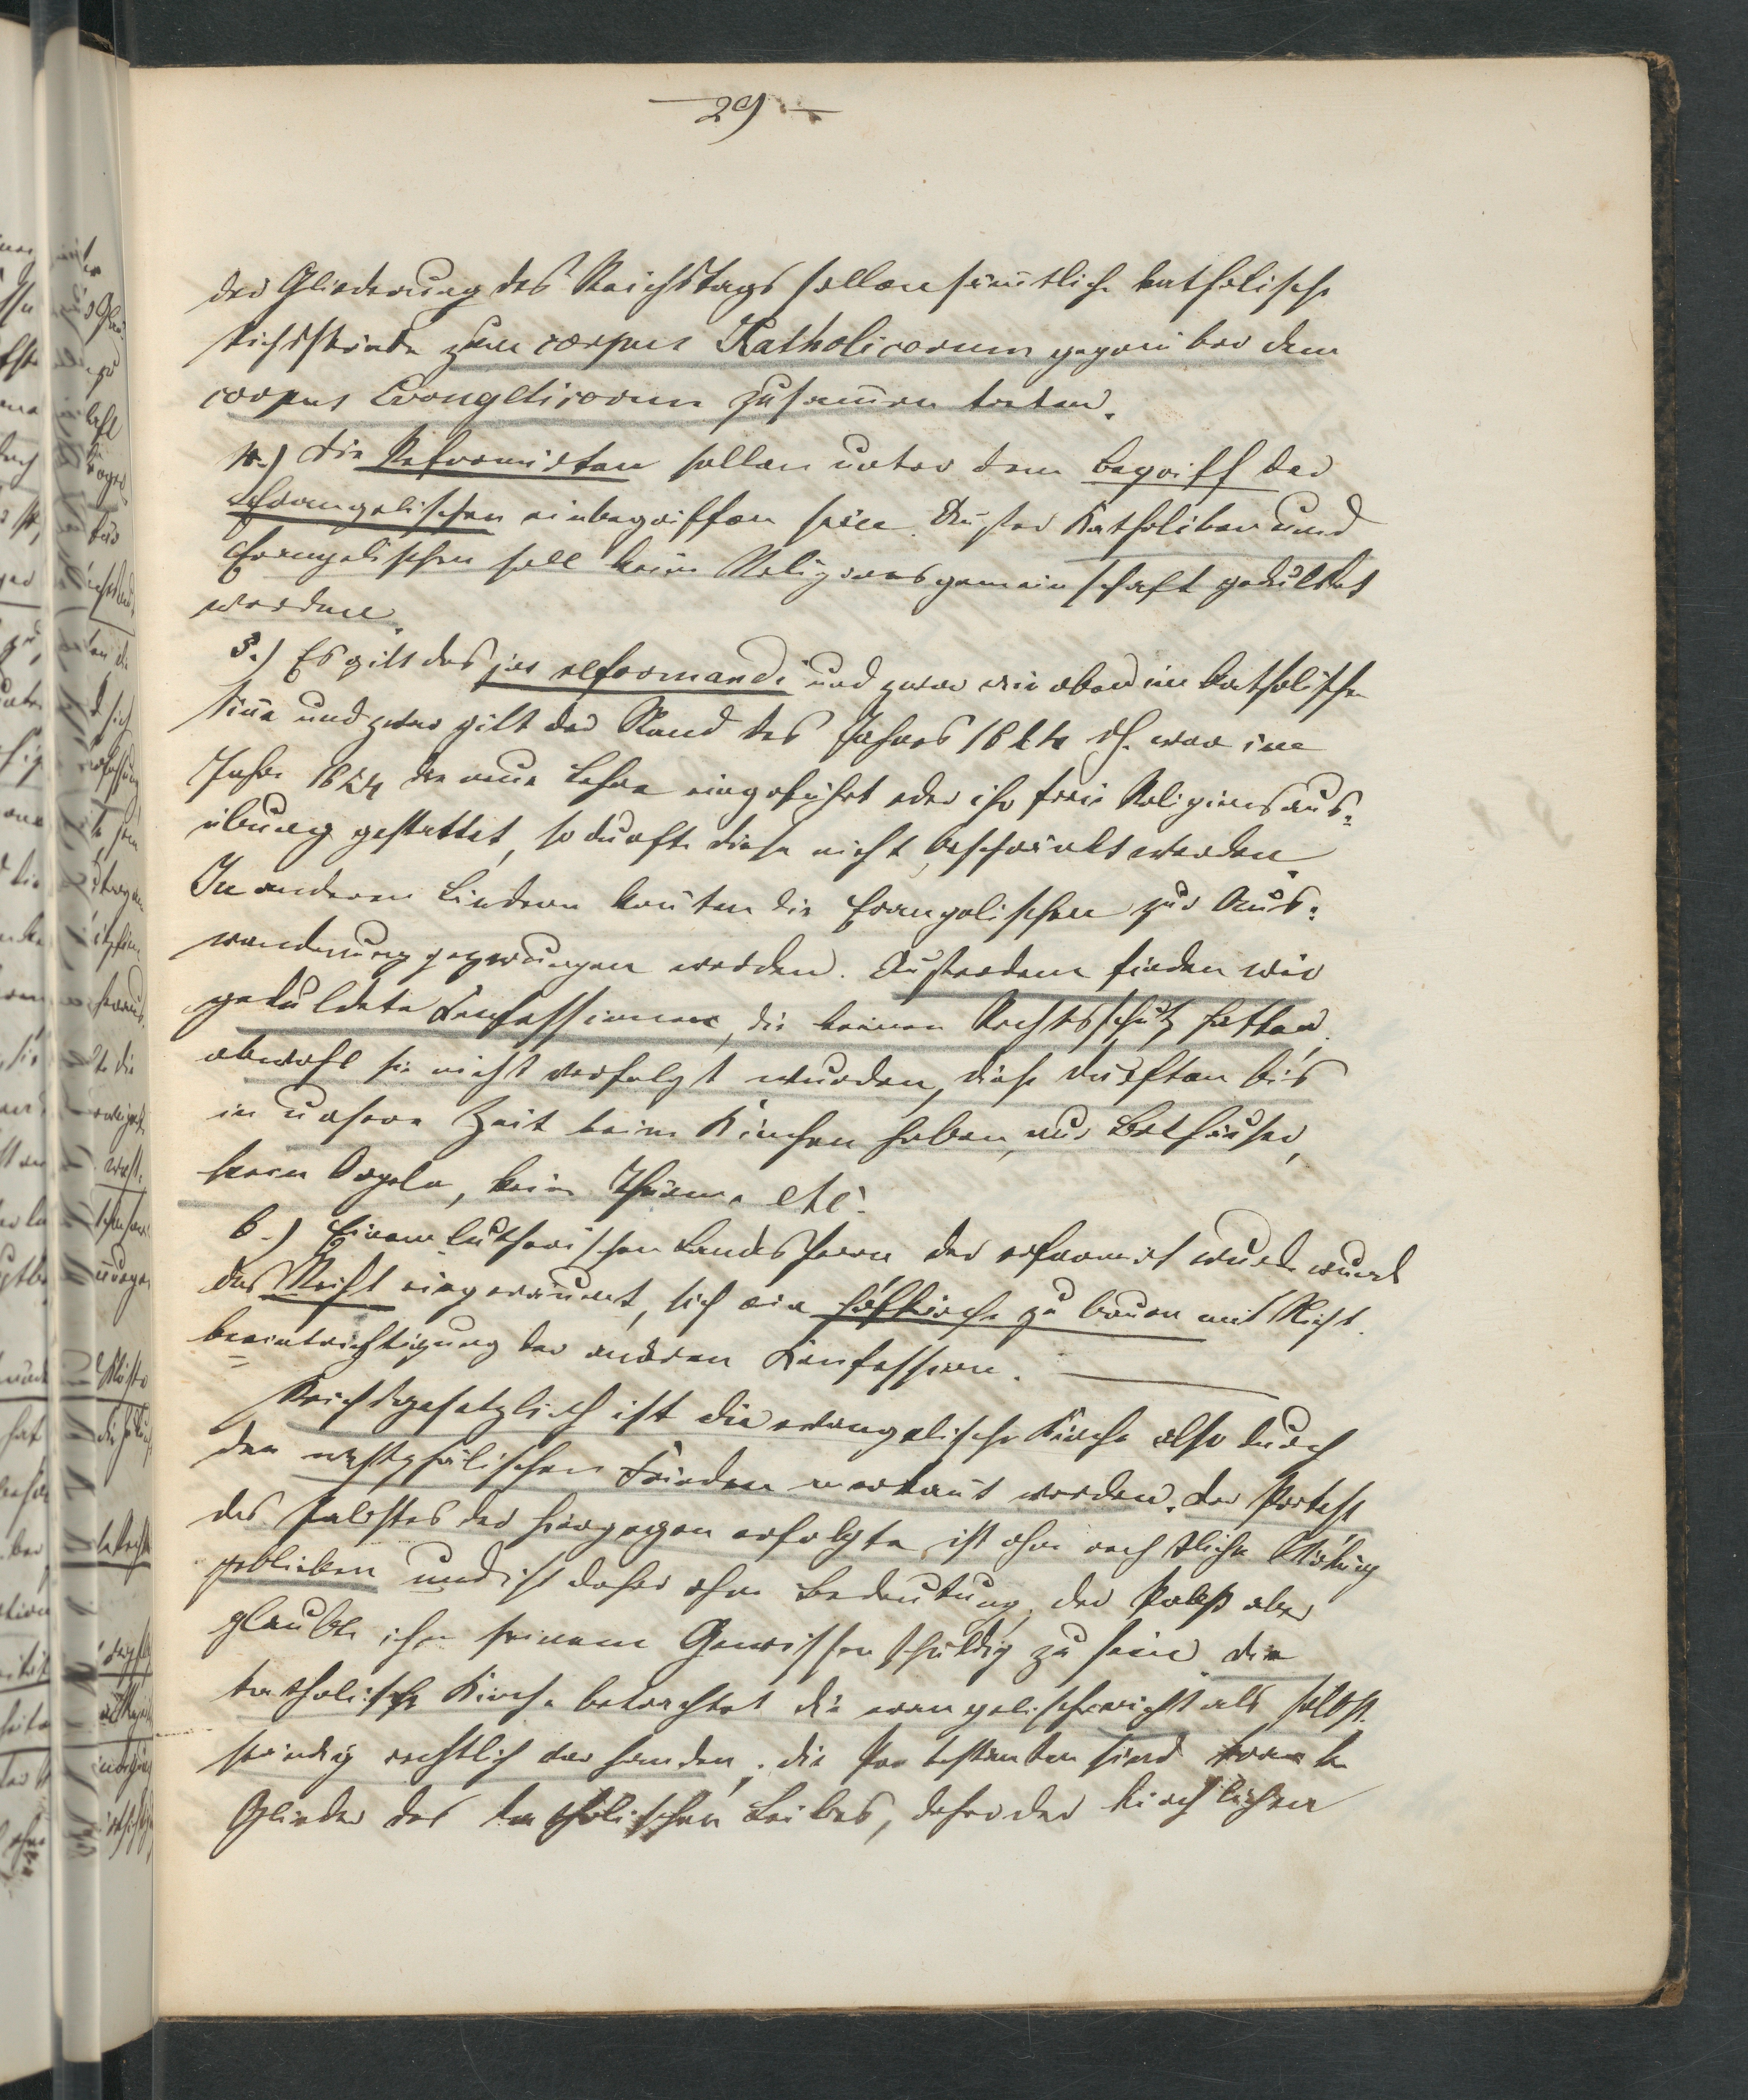 — 29 —
der Gliederung des Reichstags sollen sämtliche katholische
Reichsstände zum corpus Katholicorum gegenüber dem
corpus Evangelicorum zusammen treten.
4.) Die Reformirten sollen unter dem Begriff der
Evangelischen einbegriffen sein. Außer Katholiken und
Evangelischen soll keine Religionsgemeinschaft geduldet
werden.
5.) Es gilt das jus reformandi und zwar wie oben im katholischen
Sinne und zwar gilt der Stand des Jahres 1624 dh. war im
Jahre 1624 die neue Lehre eingeführt oder ihr freie Religionsaus-
übung gestattet, so durfte diese nicht beschränkt werden.
In anderen Ländern konnten die Evangelischen zur Aus-
wanderung gezwungen werden. Außerdem finden wir
geduldete Confessionen, die keinen Rechtsschutz hatten,
obwohl sie nicht verfolgt wurden, diese durften bis
in unsere Zeit keine Kirchen haben, nur Bethäuser,
keine Orgeln, keine Thürme etc.
6.) Einem lutherischen Landesherrn der reformirt wurde wurde
das Recht eingeräumt, sich eine Hofkirche zu bauen mit Nicht-
beeinträchtigung der anderen Konfession. —
Reichsgesetzlich ist die evangelische Kirche also durch
den westphälischen Frieden anerkannt worden. Der Protest
des Pabstes der hiergegen erfolgte ist ohne rechtliche Wirkung
geblieben und ist daher ohne Bedeutung, der Pabst aber
glaubte ihn seinem Gewissen schuldig zu sein. Die
katholische Kirche betrachtet die evangelische nicht als selbst-
ständig rechtlich vorhanden; die Protestanten sind kranke
Glieder des katholischen Leibes, daher der kirchlichen